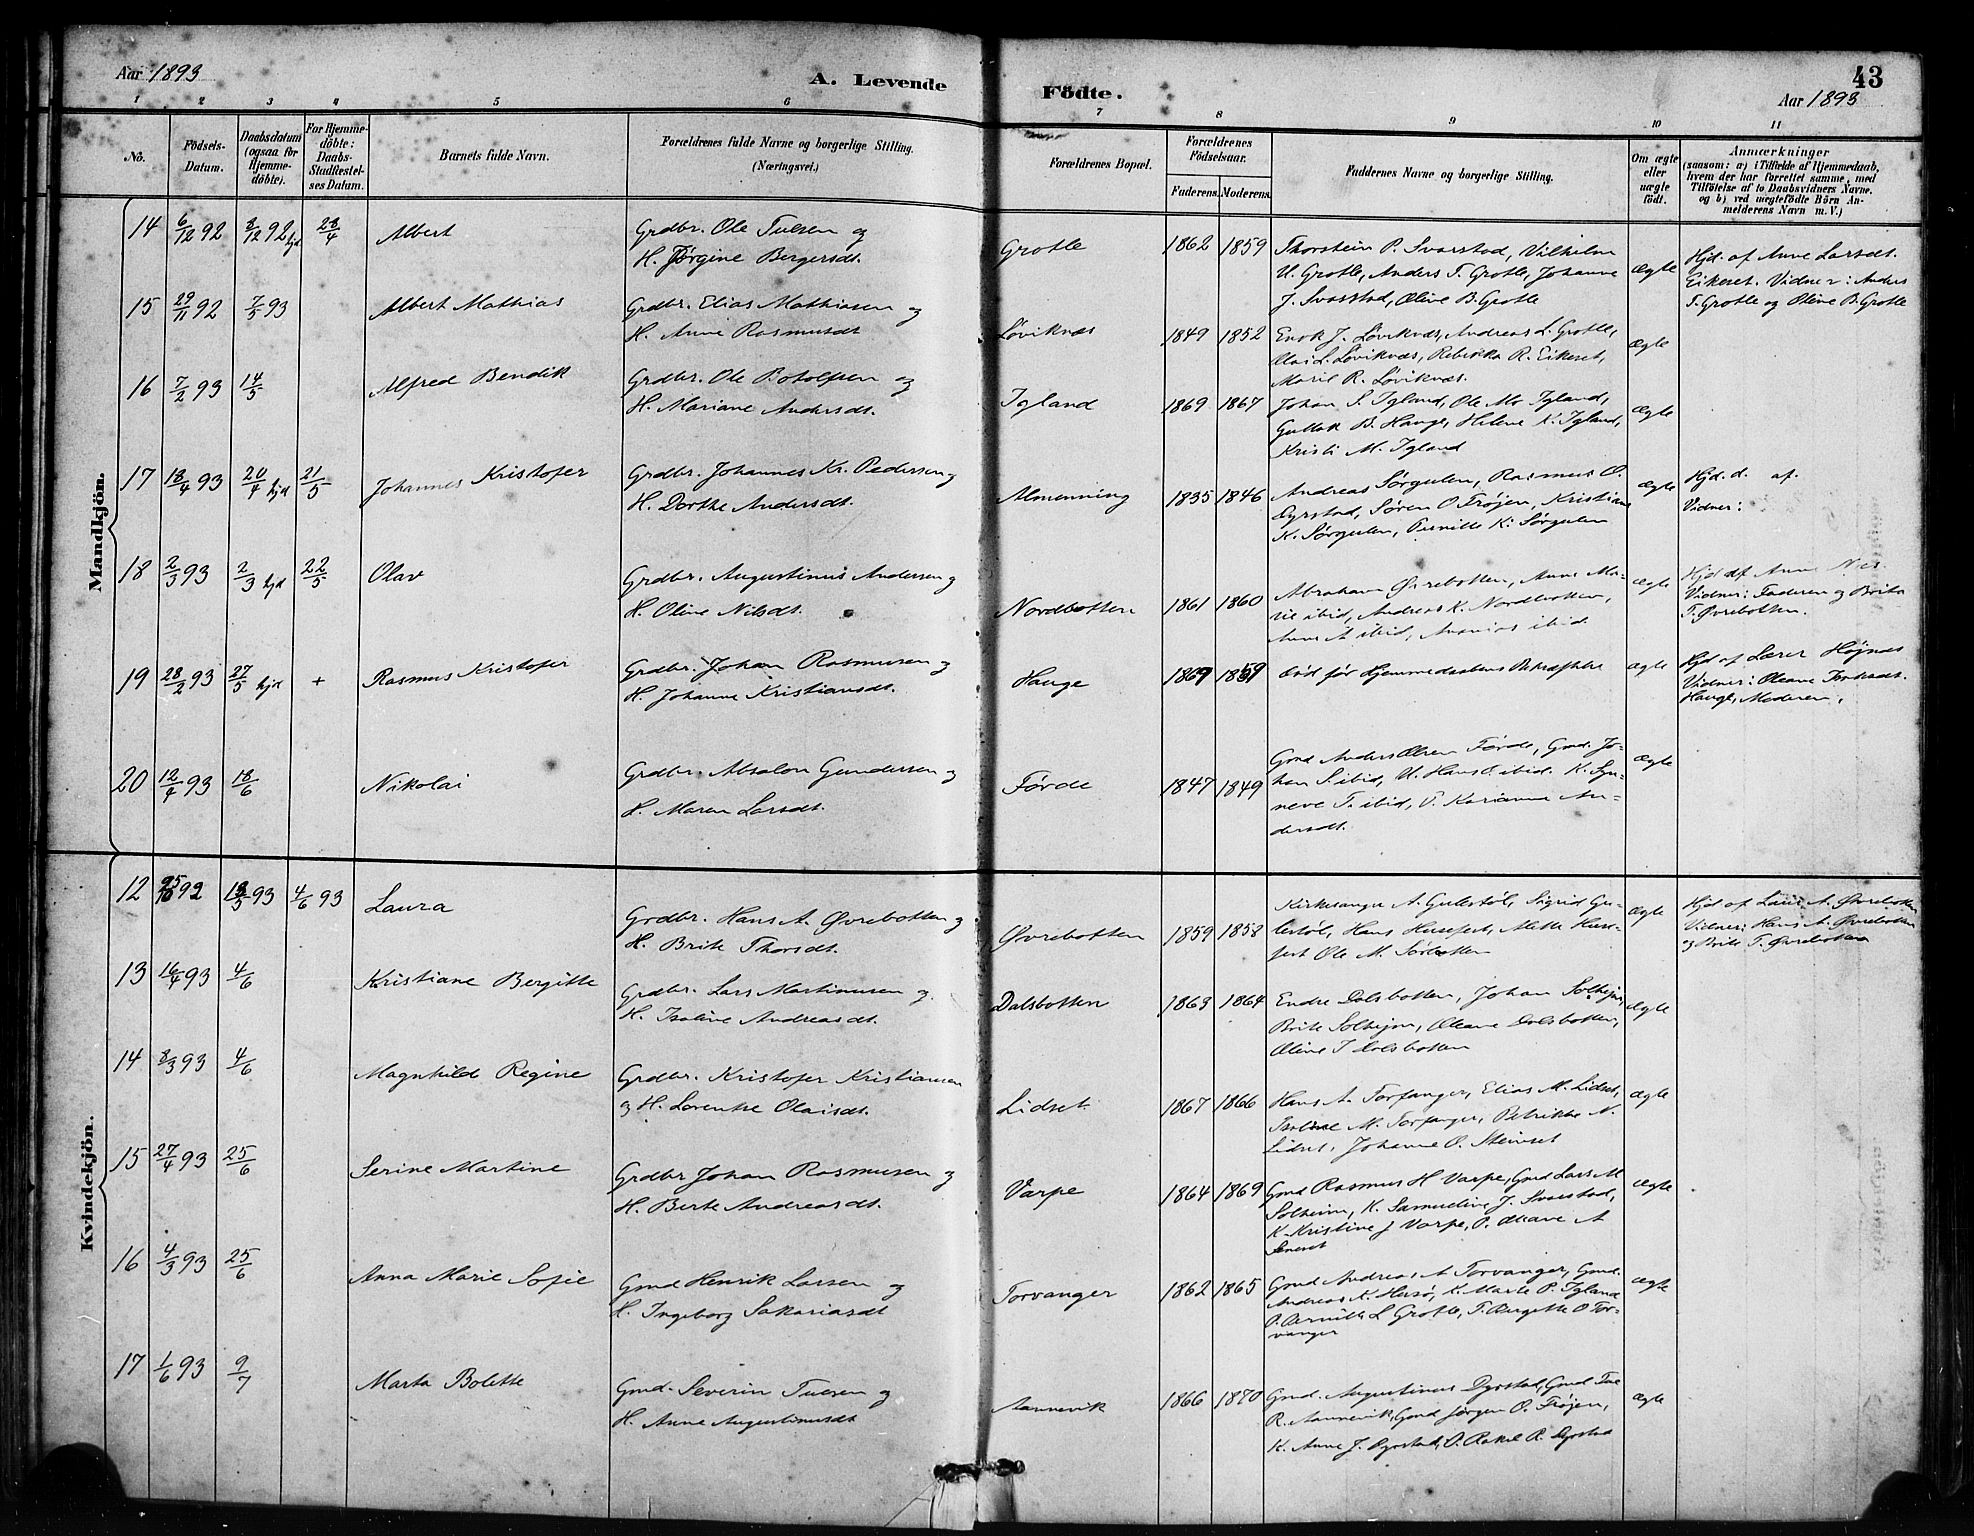 Aar 1893
A. Levende
Födte.
43
Aar 1893
1 2 3 4 5 6 7 8 9 10 11
No.
Födsels-
Datum.
Daabsdatum
(ogsaa for
Hjemme-
döbte).
For Hjemme-
döbte:
Daabs-
Stadfæstel-
ses Datum.
Barnets fulde Navn.
Forældrenes fulde Navne og borgerlige Stilling.
(Næringsvei.)
Forældrenes Bopæl.
Forældrenes
Födselsaar.
Faderens. Moderens.
Faddernes Navne og borgerlige Stilling.
Om ægte
eller
uægte
födt.
Anmærkninger
(saasom: a) i Tilfælde af Hjemmedaab,
hvem der har forrettet samme, med
Tilföielse af to Daabsvidners Navne.
og b) ved uægtefödte Börn An-
melderens Navn m. V.)
Mandkjön.
14 6/12 92 8/12 92 hjd 23/4 Albert
Grdbr. Ole Tuesen og
H. Jørgine Bergersdt.
Grotle 1862 1859
Thorstein P. Svarstad, Vilhelm
U. Grotle, Anders T. Grotle, Johanne
J. Svarstad, Oline B. Grotle
ægte
Hjd. af Anne Larsdt.
Eikeset. Vidner: Anders
T. Grotle og Oline B. Grotle
15 29/11 92 7/5 93 Albert Mathias
Grdbr. Elias Mathiasen og
H. Anne Rasmusdt
Løviknæs 1849 1852
Enok J. Løviknæs, Andreas L. Grotle,
L. Løviknæs, Rebekka R. Eikeset,
Marie R. Løviknæs.
ægte
16 7/2 93 14/5 Alfred Bendik
Grdbr. Ole Botolfsen og
H. Mariane Andersdt.
Igland 1869 1867
Johan S. Igland, Ole M. Igland,
Gullak B. Hauge, Helene K. Igland,
Kristi M. Igland
ægte
17 18/4 93 24/4 hjd 21/5 Johannes Kristofer
Grdbr. Johannes Kr. Pedersen og
H. Dorthe Andersdt.
Almenning 1835 1846
Andreas Sørgulen, Rasmus O.
Dyrstad, Søren O Frøjen, Kristiane
K. Sørgulen, Pernille K. Sørgulen
ægte
Hjd. d. af.
Vidner:
18 2/3 93 2/3 hjd 22/5 Olav
Grdbr. Augustinus Andersen og
H. Oline Nilsdt.
Nordbotten 1861 1860
Abraham Øvrebotten, Anne Ma-
rie ibid, Andreas K. Nordbotten,
Anne A ibid, Ananias ibid
ægte
Hjd af Anne
Vidner: Faderen og Brita
T. Øvrebotten.
19 28/2 93 27/5 hjd + Rasmus Kristofer
Grdbr. Johan Rasmusen og
H. Johanne Kristiansdt.
Hauge 1869 1859
død før Hjemmedaabens Bekræftelse
ægte
Hjd af Lærer Højnæs
Vidner: Oleane
Hauge, Moderen.
20 12/4 93 18/6 Nikolai
Grdbr. Absalon Gundersen og
H. Maren Larsdt.
Førde 1847 1849
Gmd Anders Olsen Førde, Gmd. Jo-
han S. ibid, U. Hans ibid. K. Sy-
neve T. ibid, P. Karianne An-
dersdt.
ægte
Kvindekjön.
12 25/10 92 12/3 93 4/6 93 Laura
Grdbr. Hans A. Øvrebotten og
H. Brite Thorsdt.
Øvrebotten 1859 1858
Kirkesanger A. Gulestøl, Sigrid Gu-
lestøl, Hans Husefest, Mette Huse-
fest Ole M. Sørbotten
ægte
Hjd af A. Øvrebotten
Vidner: Hans A. Øvrebotten
og Brite T. Øvrebotten
13 16/4 93 4/6 Kristiane Bergitte
Grdbr. Lars Martinusen og
H. Isoline Andreasdt.
Dalsbotten 1863 1864
Endre Dalsbotten, Johan Solhejm,
Brite Solhejm, Oleane Dalsbotten,
Oline J Dalsbotten
ægte
14 8/3 93 4/6 Magnhilde Regine
Grdbr. Kristofer Kristiansen
og H. Lorentse Olaisdt.
Lidset 1867 1866
Hans A. Torfanger, Elias M. Lidset,
M. Torfanger, Petrikke N.
Lidset, Johanne O. Steinset
ægte
15 27/4 93 25/6 Serine Martine
Grdbr Johan Rasmusen og
H. Berte Andreasdt.
Varpe 1864 1869
Gmd Rasmus H Varpe, Gmd Lars M
Solheim, K. Samueline J. Svarstad,
K. Kristine J Varpe, P. Oleane A
Seneset
ægte
16 4/3 93 25/6 Anna Marie Sofie
Gmd Henrik Larsen og
H. Ingeborg Sakariasdt
Torvanger 1862 1865
Gmd Andreas A Torvanger, Gmd.
Andreas K. Husø, K. Marte P. Igland
P. Pernille L Grotle, P. Bergitte O Tor-
vanger
ægte
17 1/6 93 9/7 Marta Bolette
Gmd. Severin Tuesen og
H. Anne Augustinusdt
Aannevik 1866 1870
Gmd. Augustinus Dyrstad, Gmd Tue
R. Aannevik, Gmd Jørgen O. Frøjen,
K. Anne J. Dyrstad, P. Rakel R. Dyrstad
ægte